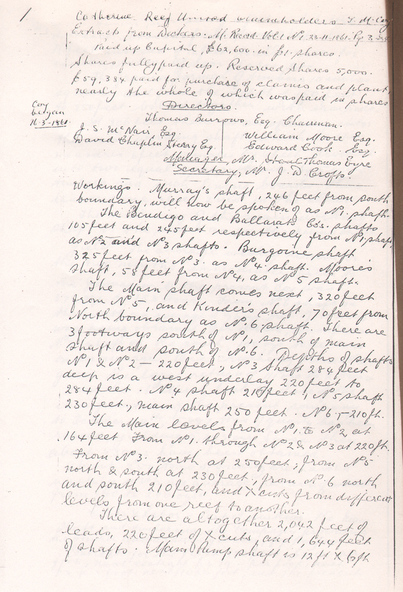 1
Catherine Reef United Claimholders
Extracts from Dickers. M. Record Vol 1 Nº
Paid up Capital, £62,600. in £1. shares.
Shares fully paid up. Reserved Shares 5,000.
£59,384 paid for purchase of claims and plant
nearly the whole of which was paid in shares
Coy
began
1861
Directors.
Thomas Burrows, Esq. Chairman.
J. S. McNair Esq. William Moore Esq.
David Chaplin Esq. Edward Cook. Esq.
Manager, Mr. Thomas Eyre
Secretary, Mr. J. D. Crofts.
Workings. Murray's shaft, 246 feet from south
boundary, will now be spoken of as Nº1. shaft.
The Bendigo and Ballarat Co's. shafts
105 feet and 245 feet respectively from Nº1 shaft
as Nº2 and Nº3 shafts. Burgoine shaft
325 feet from Nº3. as Nº4 shaft. Moore's
shaft, 58 feet from Nº4, as Nº5 shaft.
The Main shaft comes next, 320 feet
from Nº5, and Kinder's shaft, 70 feet from
North boundary as Nº6 shaft. There are
3 footways south of Nº1, south of main
shaft and south of Nº6. Depths of shafts
Nº1 & Nº2 - 220 feet, Nº3 shaft 284 feet
deep is a west underlay 220 feet to
284 feet. Nº4 shaft 218 feet, Nº5 shaft
230 feet, main shaft 250 feet. Nº6 - 210 ft.
The Main levels from Nº1 to Nº2 at
164 feet from Nº1. through Nº2 & Nº3 at 220 ft.
From Nº3. north at 250 feet, from Nº5
north & south at 230 feet, from Nº6 north
and south 210 feet, and X cuts from different
levels from one reef to another.
There are altogether 2,042 feet of
leads, 220 feet of X cuts, and 1,644 feet
of shafts. Main Pump shaft is 12ft x 6ft